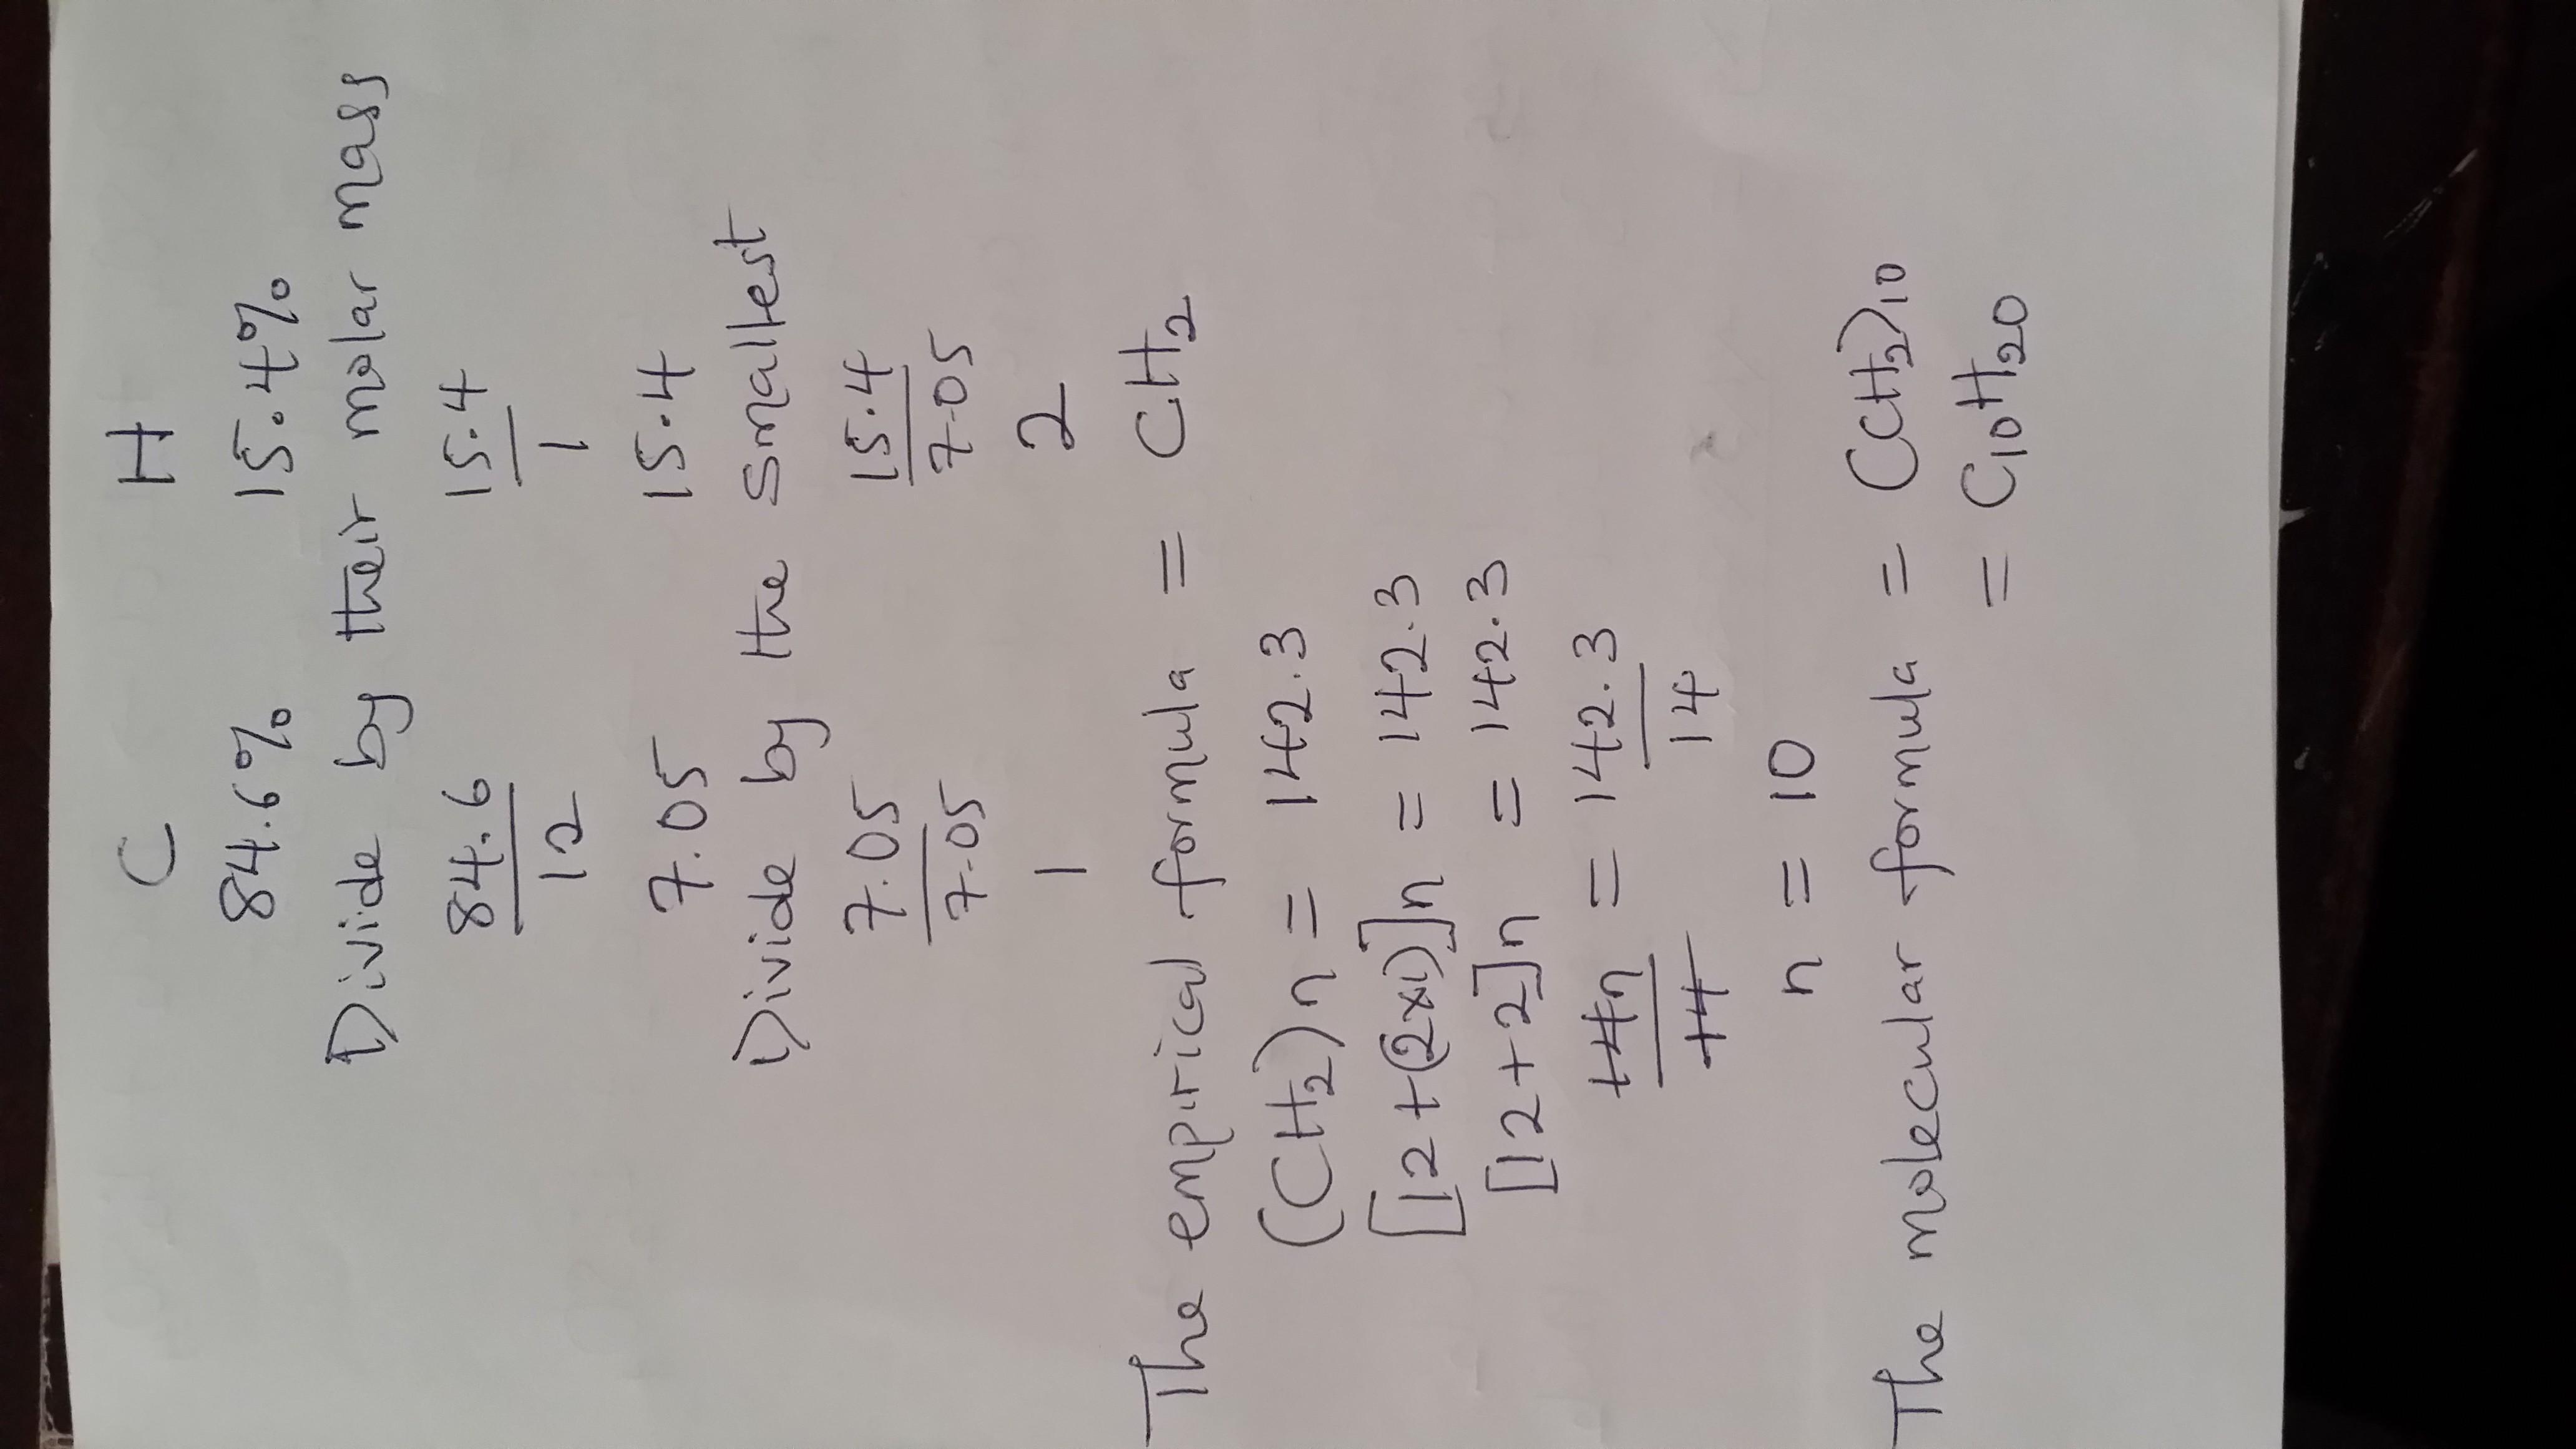 C H
84.6% 15.4%
Divide by their molar mass
84.6 15.4
12 1
7.05 15.4
Divide by the smallest
7.05 15.4
7.05 7.05
1 2
The empirical formula = CH2
(CH2)n = 142.3
[12+(2×1)]n = 142.3
[12+2]n = 142.3
14n = 142.3
14 14
n = 10
The molecular formula = (CH2)10
= C10H20